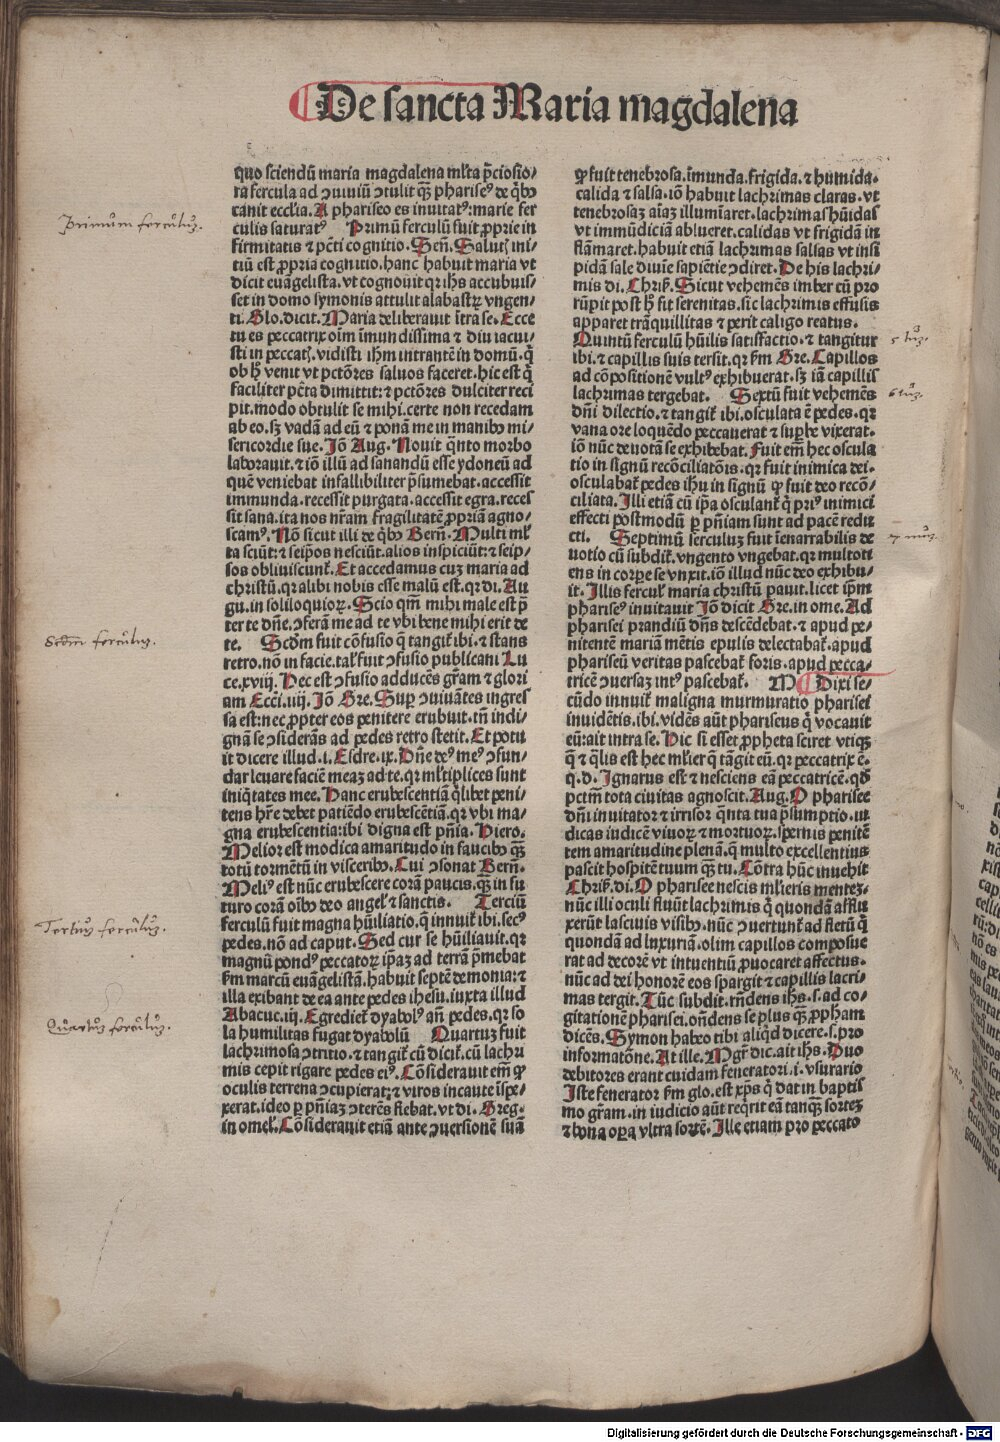 De sancta Maria magdalena
quo sciendũ maria magdalena ml̃ta p̃ciosio/
ra fercula ad ↄuiuiũ ↄtulit q̃ꝫ phariseꝰ de q̃bꝰ
canit eccl̃ia. A phariseo es inuitatꝰ: marie fer
culis saturatꝰ Primũ ferculũ fuit ꝓprie in
firmitatis ⁊ pc̃ti cognitio. Señ. Salutꝭ ini/
tiũ est ꝓpria cognitio. hanc habuit maria vt
dicit euãgelista. vt cognouit qꝛ ihs̃ accubuis/
set in domo symonis attulit alabastꝝ vngen/
ti. Glo. dicit. Maria deliberauit ĩtra se. Ecce
tu es peccatrix oĩm ĩmundissima ⁊ diu iacui/
sti in peccatꝭ. vidisti ihm̃ intrantẽ in domũ. q̃
ob h̃ venit vt pctõres saluos faceret. hic est q̃
faciliter pc̃ta dimittit: ⁊ pctõres dulciter reci
pit. modo obtulit se mihi. certe non recedam
ab eo. sꝫ vadã ad eũ ⁊ ponã me in manibꝰ mi/
sericordie sue. Jõ Aug. Nouit q̃nto morbo
laborauit. ⁊ iõ illũ ad sanandũ esse ydoneũ ad
quẽ veniebat infallibiliter p̃sumebat. accessit
immunda. recessit purgata. accessit egra. reces
sit sana. ita nos nr̃am fragilitatẽ ꝓpriã agno/
scamꝰ. Nõ sicut illi de q̃bꝰ Berñ. Multi ml̃
ta sciũt: ⁊ seip̃os nesciũt. alios inspiciũt: ⁊ seip/
sos obliuiscunt̃. Et accedamus cuꝫ maria ad
christũ. qꝛ alibi nobis esse malũ est. qꝛ di. Au
gu. in soliloquioꝝ. Scio qm̃ mihi male est p̃
ter te dñe. ↄferã me ad te vbi bene mihi erit de
te. Scðm fuit cõfusio q̃ tangit̃ ibi. ⁊ stans
retro. nõ in facie. tal̃ fuit ↄfusio publicani Lu
ce. xviij. Hec est ↄfusio adducẽs gr̃am ⁊ glori
am Ecci. iiij. Jõ Gre. Suꝑ ↄuiuãtes ingres
sa est: nec ꝓpter eos penitere erubuit. tñ indi/
gnã se ↄsiderãs ad pedes retro stetit. Et potu
it dicere illud. i. Esdre. ix. Dñe deꝰ meꝰ ↄfun/
dar leuare faciẽ meaꝫ ad te. qꝛ ml̃tiplices sunt
iniq̃tates mee. Hanc erubescentiã q̃libet peni/
tens hr̃e debet patiẽdo erubescẽtiã. qꝛ vbi ma/
gna erubescentia: ibi digna est pñia. Hiero.
Melior est modica amaritudo in faucibꝰ q̃ꝫ
totũ tormẽtũ in visceribꝰ. Cui ↄsonat Berñ.
Meliꝰ est nũc erubescere corã paucis. q̃ꝫ in fu
turo corã oĩbꝰ deo angel̃ ⁊ sanctis. Terciũ
ferculũ fuit magna hũiliatio. q̃ innuit̃ ibi. secꝰ
pedes. nõ ad caput. Sed cur se hũiliauit. qꝛ
magnũ pondꝰ peccatoꝝ ip̃aꝫ ad terrã p̃mebat
ẽm marcũ euãgelistã. habuit septẽ demonia: ⁊
illa exibant de ea ante pedes ihesu. iuxta illud
Abacuc. iij. Egrediet̃ dyabolꝰ añ pedes. qꝛ so
la humilitas fugat dyabolũ Quartuꝫ fuit
lachrimosa ↄtritio. ⁊ tangit̃ cũ dicit̃. cũ lachri
mis cepit rigare pedes eiꝰ. Cõsiderauit em̃ ꝙ
oculis terrena ↄcupierat: ⁊ viros incaute ĩspe/
xerat. ideo ꝑ pñiaꝫ ↄterẽs flebat. vt di. Greg.
in omel̃. Cõsiderauit etiã ante ↄuersionẽ suã
ꝙ fuit tenebrosa. ĩmunda. frigida. ⁊ humida.
calida ⁊ salsa. iõ habuit lachrimas claras. vt
tenebrosaꝫ aĩaꝫ illumĩaret. lachrimas hũidas
vt immũdiciã ablueret. calidas vt frigidã in
flãmaret. habuit etiã lachrimas salsas vt insi
pidã sale diuĩe sapiẽtie ↄdiret. De his lachri/
mis di. Chriß. Sicut vehemẽs imber cũ pro
rũpit post h̃ fit serenitas. sic̃ lachrimis effusis
apparet trãquillitas ⁊ perit caligo reatus.
Quintũ ferculũ hũilis satisfactio. ⁊ tangitur
ibi. ⁊ capillis suis tersit. qꝛ ẽm Gre. Capillos
ad cõpositionẽ vultꝰ exhibuerat. sꝫ iã capillis
lachrimas tergebat. Sextũ fuit vehemẽs
dñi dilectio. ⁊ tangit̃ ibi. osculata ẽ pedes. qꝛ
vana ore loquẽdo peccauerat ⁊ suꝑbe vixerat.
iõ nũc deuotã se exhibebat. Fuit em̃ hec oscula
tio in signũ recõciliatõis. qꝛ fuit inimica dei.
osculabat̃ pedes ihũ in signũ ꝙ fuit deo recõ/
ciliata. Illi etiã cũ ip̃a osculant̃ q̃ priꝰ inimici
effecti postmodũ ꝑ pñiam sunt ad pacẽ redu
cti. Septimũ ferculuꝫ fuit ĩenarrabilis de
uotio cũ subdit̃. vngento vngebat. qꝛ multoti
ens in corꝑe se vnxit. iõ illud nũc deo exhibu/
it. Illis fercul̃ maria christũ pauit. licet ip̃m
phariseꝰ inuitauit Jõ dicit Gre. in ome. Ad
pharisei prandiũ dñs descẽdebat. ⁊ apud pe/
nitentẽ mariã mẽtis epulis delectabat̃. apud
phariseũ veritas pascebat̃ foris. apud pecca/
tricẽ ↄuersaꝫ intꝰ pascebat̃. M Dixi se/
cũdo innuit̃ maligna murmuratio pharisei
inuidẽtis. ibi. vidẽs aũt phariseus q̃ vocauit
eũ: ait intra se. Hic si esset ꝓpheta sciret vtiqꝫ
q̃ ⁊ q̃lis est hec ml̃ier q̃ tãgit eũ. qꝛ peccatrix ẽ.
q. d. Ignarus est ⁊ nesciens eã peccatricẽ. qð
pctm̃ tota ciuitas agnoscit. Aug. O pharisee
dñi inuitator ⁊ irrisor q̃nta tua p̃sumptio. iu
dicas iudicẽ viuoꝝ ⁊ mortuoꝝ. spernis penitẽ
tem amaritudine plenã. q̃ multo excellentius
pascit hospitẽ tuum q̃ꝫ tu. Cõtra hũc inuehit
Chriß. di. O pharisee nescis ml̃ieris menteꝫ.
nũc illi oculi fluũt lachrimis q̃ quondã afflu
xerũt lasciuis visibꝰ. nũc ↄuertunt̃ ad fletũ q̃
quondã ad luxuriã. olim capillos composue
rat ad decorẽ vt intuentiũ ꝓuocaret affectus.
nũc ad dei honorẽ eos spargit ⁊ capillis lacri
mas tergit. Tũc subdit. rñdens ihs̃. s. ad co/
gitationẽ pharisei. oñdens se plus q̃ꝫ ꝓpham
dicẽs. Symon habeo tibi aliq̃d dicere. s. pro
informatõne. At ille. Mgr̃ dic. ait ihs̃. Duo
debitores erant cuidam feneratori. i. vsurario
Iste fenerator ẽm glo. est xp̃s q̃ dat in baptis
mo gr̃am. in iudicio aũt reqrit eã tanq̃ꝫ sorteꝫ
⁊ bona oꝑa vltra sortẽ. Ille etiam pro peccato
Primum ferculuꝫ.
Scðm ferculuꝫ.
Tertiuꝫ ferculuꝫ.
Quartuꝫ ferculuꝫ.
5 tuꝫ.
6 tuꝫ.
Digitalisierung gefördert durch die Deutsche Forschungsgemeinschaft - DFG